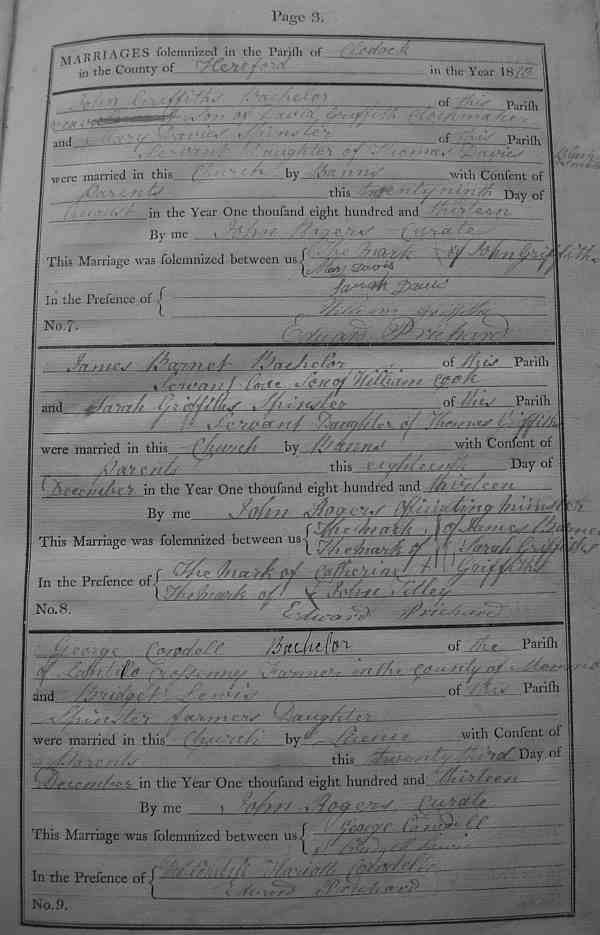 Page 3.
MARRIAGES ſolemnized in the Pariſh of Clodock
in the County of Hereford in the Year 1813
John Griffiths Bachelor of this Pariſh
Son of David Griffith Clockmaker
and Mary Davies Spinster of this Pariſh
Servant Daughter of Thomas Davies
were married in this Church by Banns with Conſent of
Parents this twenty ninth Day of
August in the Year One thouſand eight hundred and thirteen
By me John Rogers Curate
This Marriage was ſolemnized between us { The Mark of John Griffiths
Mary Davis
In the Preſence of { Sarah Davis
William Griffiths
Edward Prichard
No.7.
James Barnet Bachelor of this Pariſh
Servant Son of William Cook
and Sarah Griffiths Spinster of this Pariſh
Servant Daughter of Thomas Griffith
were married in this Church by Banns with Conſent of
Parents this eighteenth Day of
December in the Year One thouſand eight hundred and thirteen
By me John Rogers Officiating minister
This Marriage was ſolemnized between us { The mark of James Barnet
The mark of Sarah Griffiths
In the Preſence of { The Mark of Catherine + Griffiths
The mark of John Tilley
Edward Prichard
No.8.
George Cowdell Bachelor of the Pariſh
of Crossenny Farmer in the County of
and Bridget Lewis of this Pariſh
Spinster farmers Daughter
were married in this Church by Licence with Conſent of
Parents this twenty third Day of
December in the Year One thouſand eight hundred and thirteen
By me John Rogers Curate
This Marriage was ſolemnized between us { George Cowdell
In the Preſence of {
Edward Prichard
No.9.